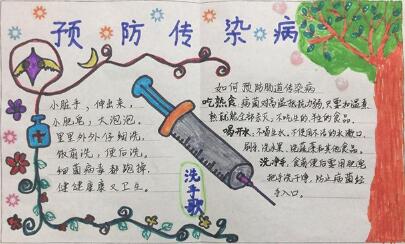 预防传染病
小脏手，伸出来，
小肥皂，大泡泡。
里里外外仔细洗，
饭前洗，便后洗。
细菌病毒都跑掉，
健健康康又卫生。
洗手歌
如何预防肠道传染病
吃熟食，病菌对高温抵抗力弱，只要加温煮
熟就能全部杀灭，不吃生的、独的食品。
喝开水，不喝生水，不使用不洁的水漱口，
刷牙、洗冰果、洗蔬菜和其他食品。
洗净手，食前便后需用肥皂
把手洗干净，防止病菌经
手入口。